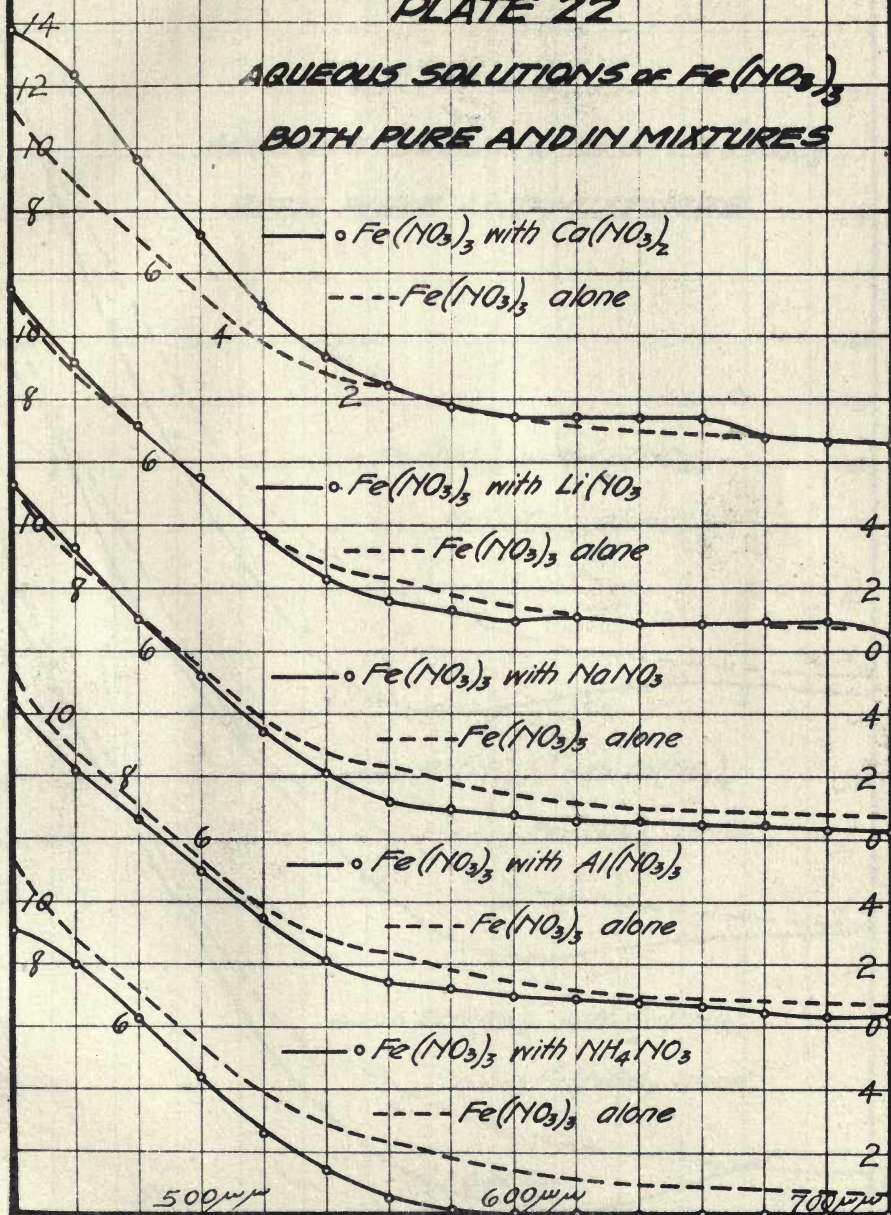 PLATE 22
14
AQUEOUS SOLUTIONS OF Fe(NO₃)₃
12
BOTH PURE AND IN MIXTURES
10
8
Fe(NO₃)₃ with Ca(NO₃)₂
6
Fe(NO₃)₃ alone
10
4
8
2
6
Fe(NO₃)₃ with LiNO₃
10
4
Fe(NO₃)₃ alone
8
2
6
0
Fe(NO₃)₃ with NaNO₃
10
4
Fe(NO₃)₃ alone
8
2
6
0
Fe(NO₃)₃ with Al(NO₃)₃
10
4
Fe(NO₃)₃ alone
8
2
6
0
Fe(NO₃)₃ with NH₄NO₃
4
Fe(NO₃)₃ alone
2
500μμ 600μμ 700μμ